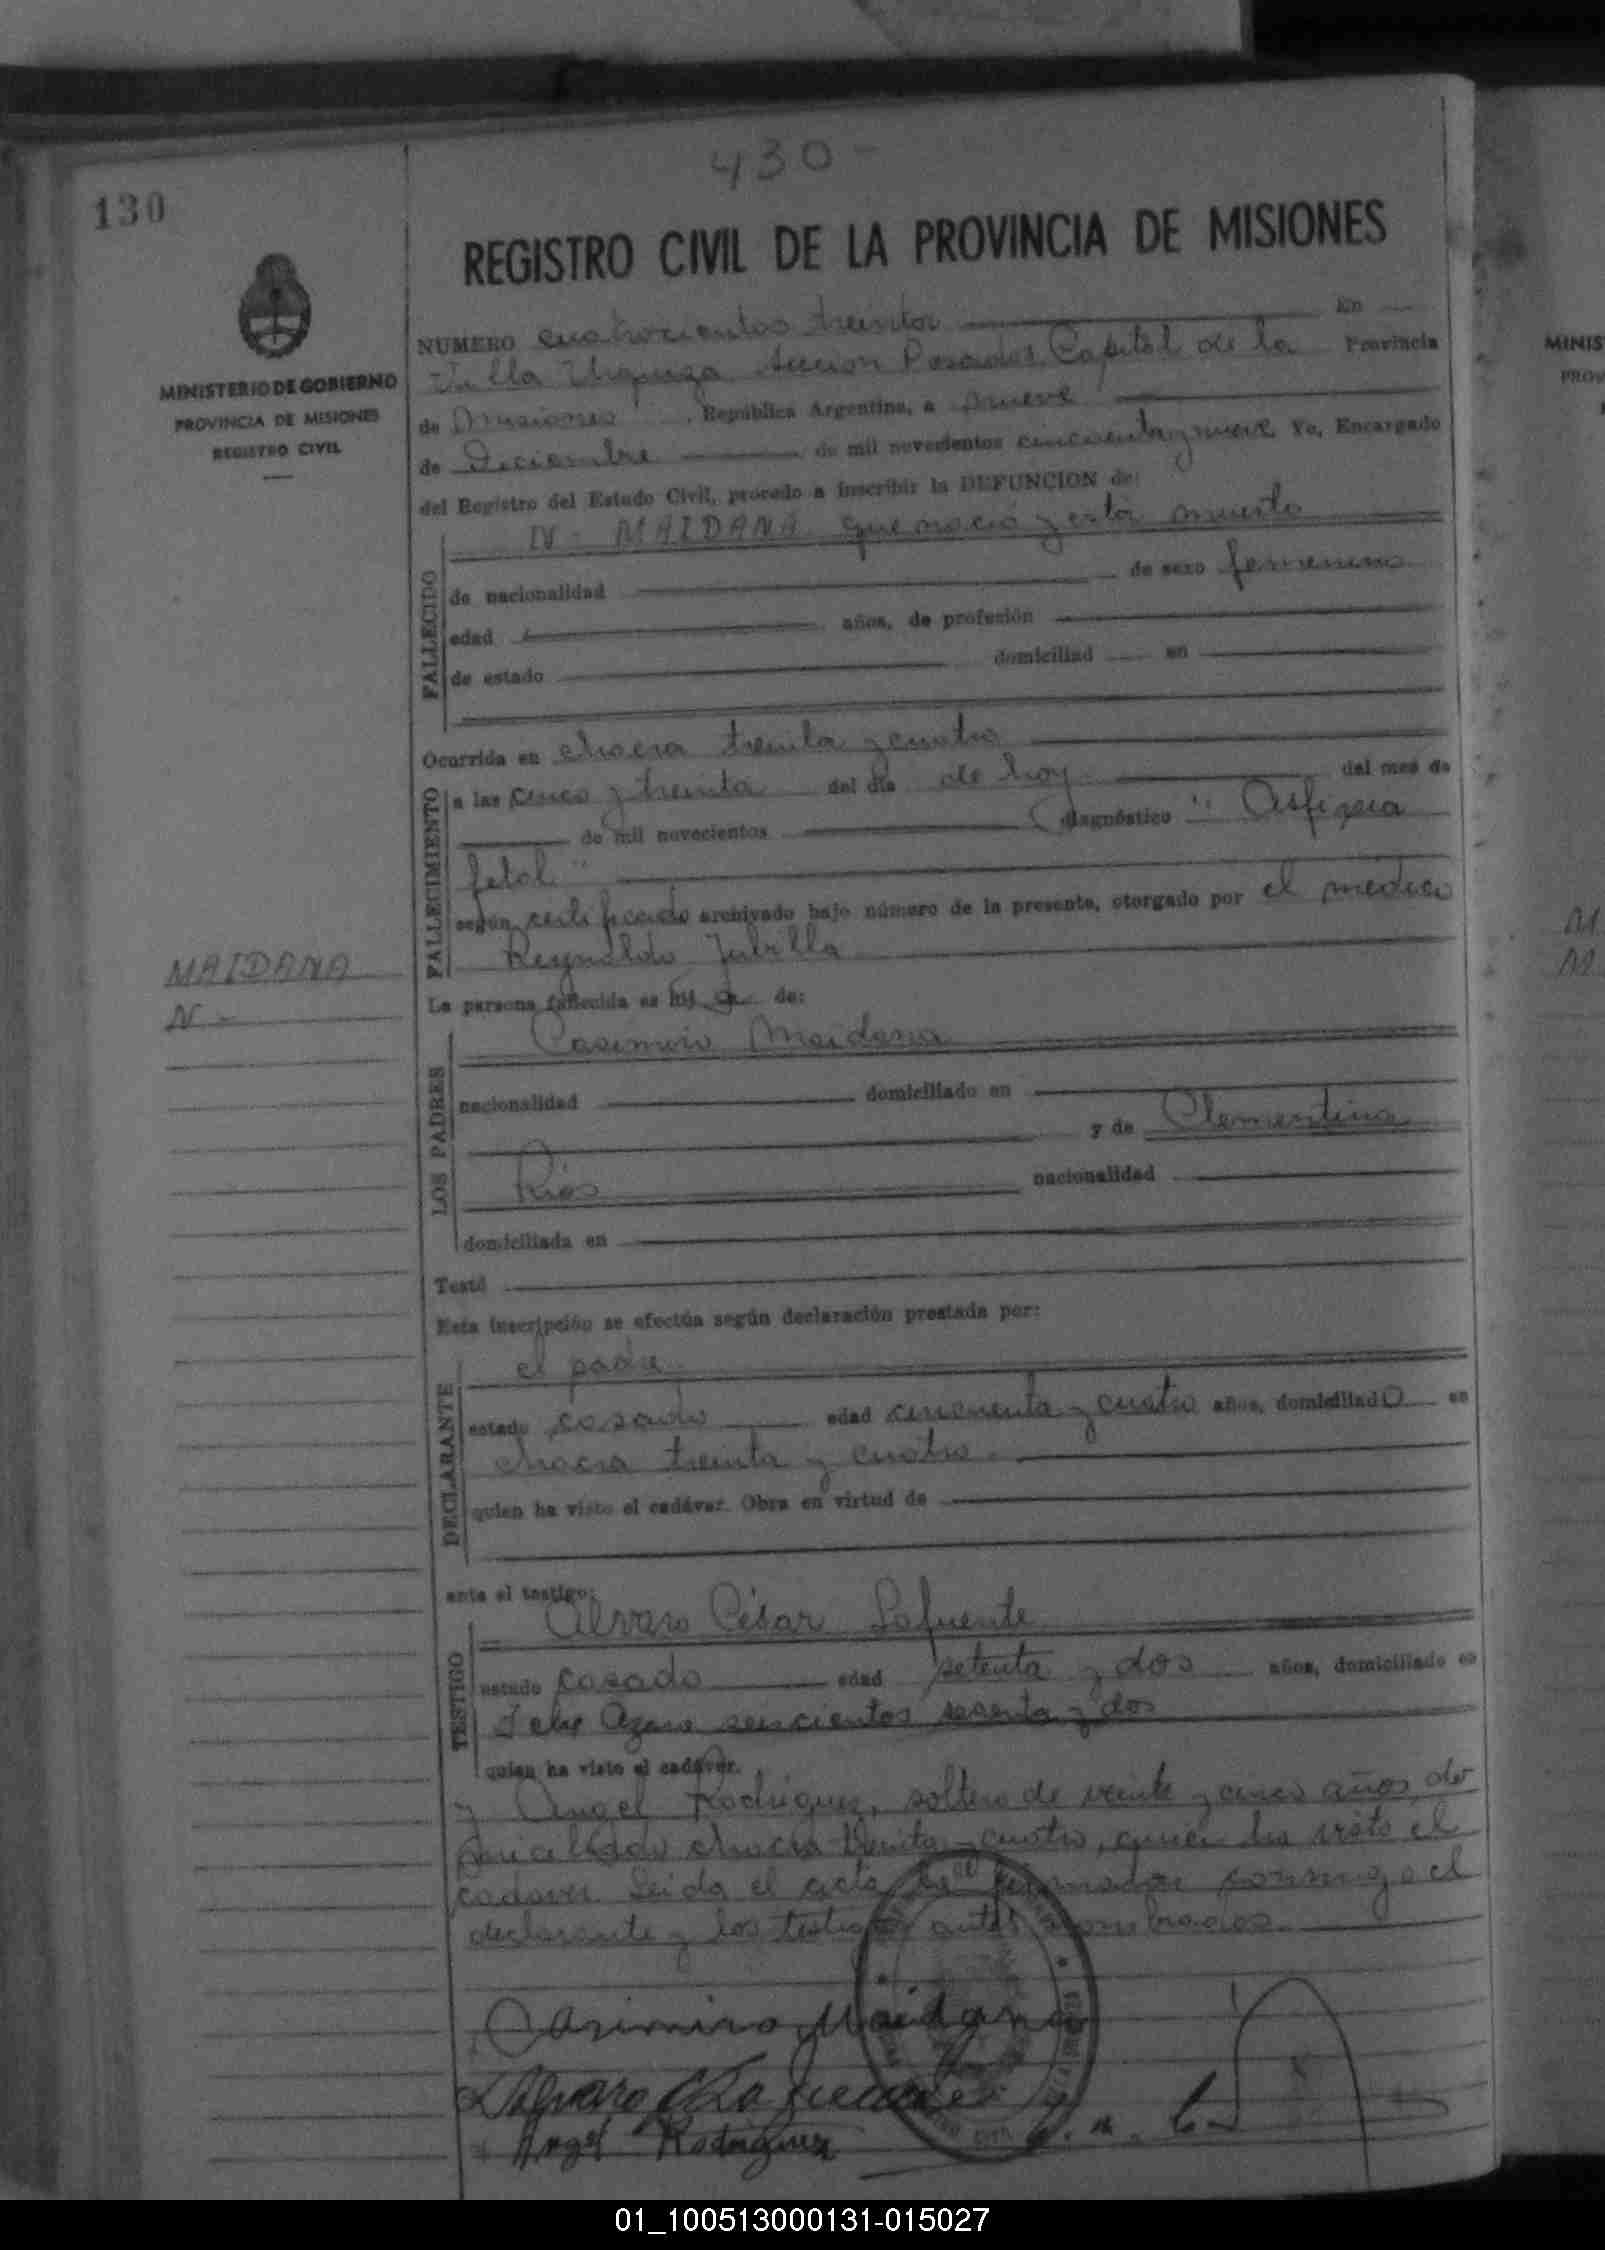 430 -
130
REGISTRO CIVIL DE LA PROVINCIA DE MISIONES
MINISTERIO DE GOBIERNO
PROVINCIA DE MISIONES
REGISTRO CIVIL
NUMERO cuatrocientos treinta En
Villa Urquiza Sección Posadas Capital de la Provincia
de Misiones, República Argentina, a nueve
de Diciembre de mil novecientos cincuenta y nueve Yo, Encargado
del Registro del Estado Civil, procedo a inscribir la DEFUNCION de:
FALLECIDO
N - MAIDANA que nació y está muerto
de nacionalidad de sexo femenino
edad años, de profesión
de estado domiciliad en
Ocurrida en chacra treinta y cuatro
FALLECIMIENTO
a las cinco y treinta del día de hoy del mes de
de mil novecientos diagnóstico "Asfixia
fetal"
según certificado archivado bajo número de la presente, otorgado por el médico
Reynaldo
MAIDANA
N -
La persona fallecida es hija de:
LOS PADRES
Casimiro Maidana
nacionalidad domiciliado en
y de Clementina
Ríos nacionalidad
domiciliada en
Testó
Esta inscripción se efectúa según declaración prestada por:
DECLARANTE
el padre
estado casado edad cincuenta y cuatro años, domiciliado en
chacra treinta y cuatro.
quien ha visto el cadáver. Obra en virtud de
ante el testigo:
TESTIGO
Alvaro César Lafuente
estado casado edad setenta y dos años, domiciliado en
Felix Azara seiscientos sesenta y dos
quien ha visto el cadáver.
y Angel Rodriguez, soltero de veinte y cinco años, do
miciliado chacra treinta y cuatro, quien ha visto el
cadaver. Leida el acta la firmaron conmigo el
declarante y los testigos antes nombrados.
Casimiro Maidana
Alvaro C Lafuente
Angel Rodriguez
MINIS
PROV
01_100513000131-015027